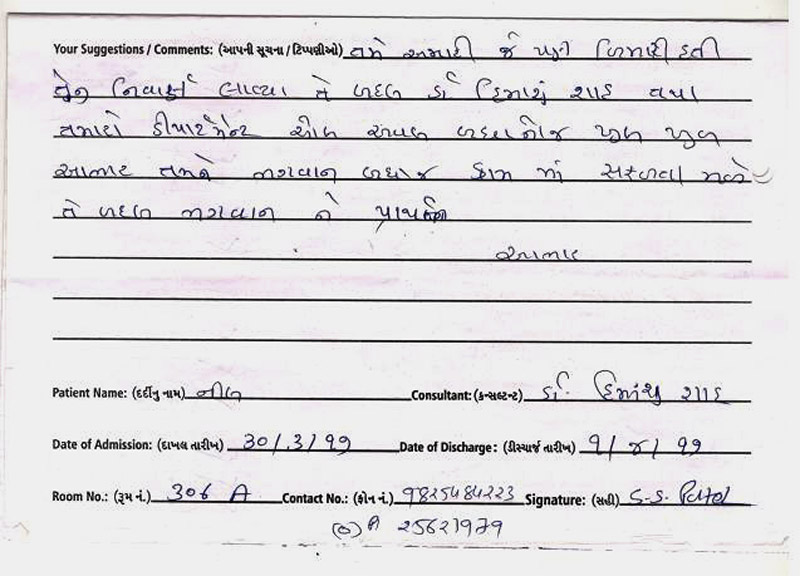 Your Suggestions / Comments: (આપની સૂચના / ટિપ્પણીઓ) તમે અમારી જે પણ બિમારી હતી
તેનુ નિવારણ લાવ્યા તે બદલ ડૉ હિમાંશુ શાહ તથા
તમારો ડીપાર્ટમેન્ટ બદલ ખુબ ખુબ
આભાર તમને ભગવાન બધાજ કામ માં સફળતા મળે
તે બદલ ભગવાન ને પ્રાર્થના
આભાર
Patient Name: (દર્દીનુ નામ) નીલ Consultant: (કન્સલ્ટન્ટ) ડૉ. હિમાંશુ શાહ
Date of Admission: (દાખલ તારીખ) 30/3/૧૧ Date of Discharge: (ડીસ્ચાર્જ તારીખ) ૧/૪/૧૧
Room No.: (રૂમ નં.) 306 A Contact No.: (ફોન નં.) 9825484223 Signature: (સહી) S.S. Patel
(O) 25621979